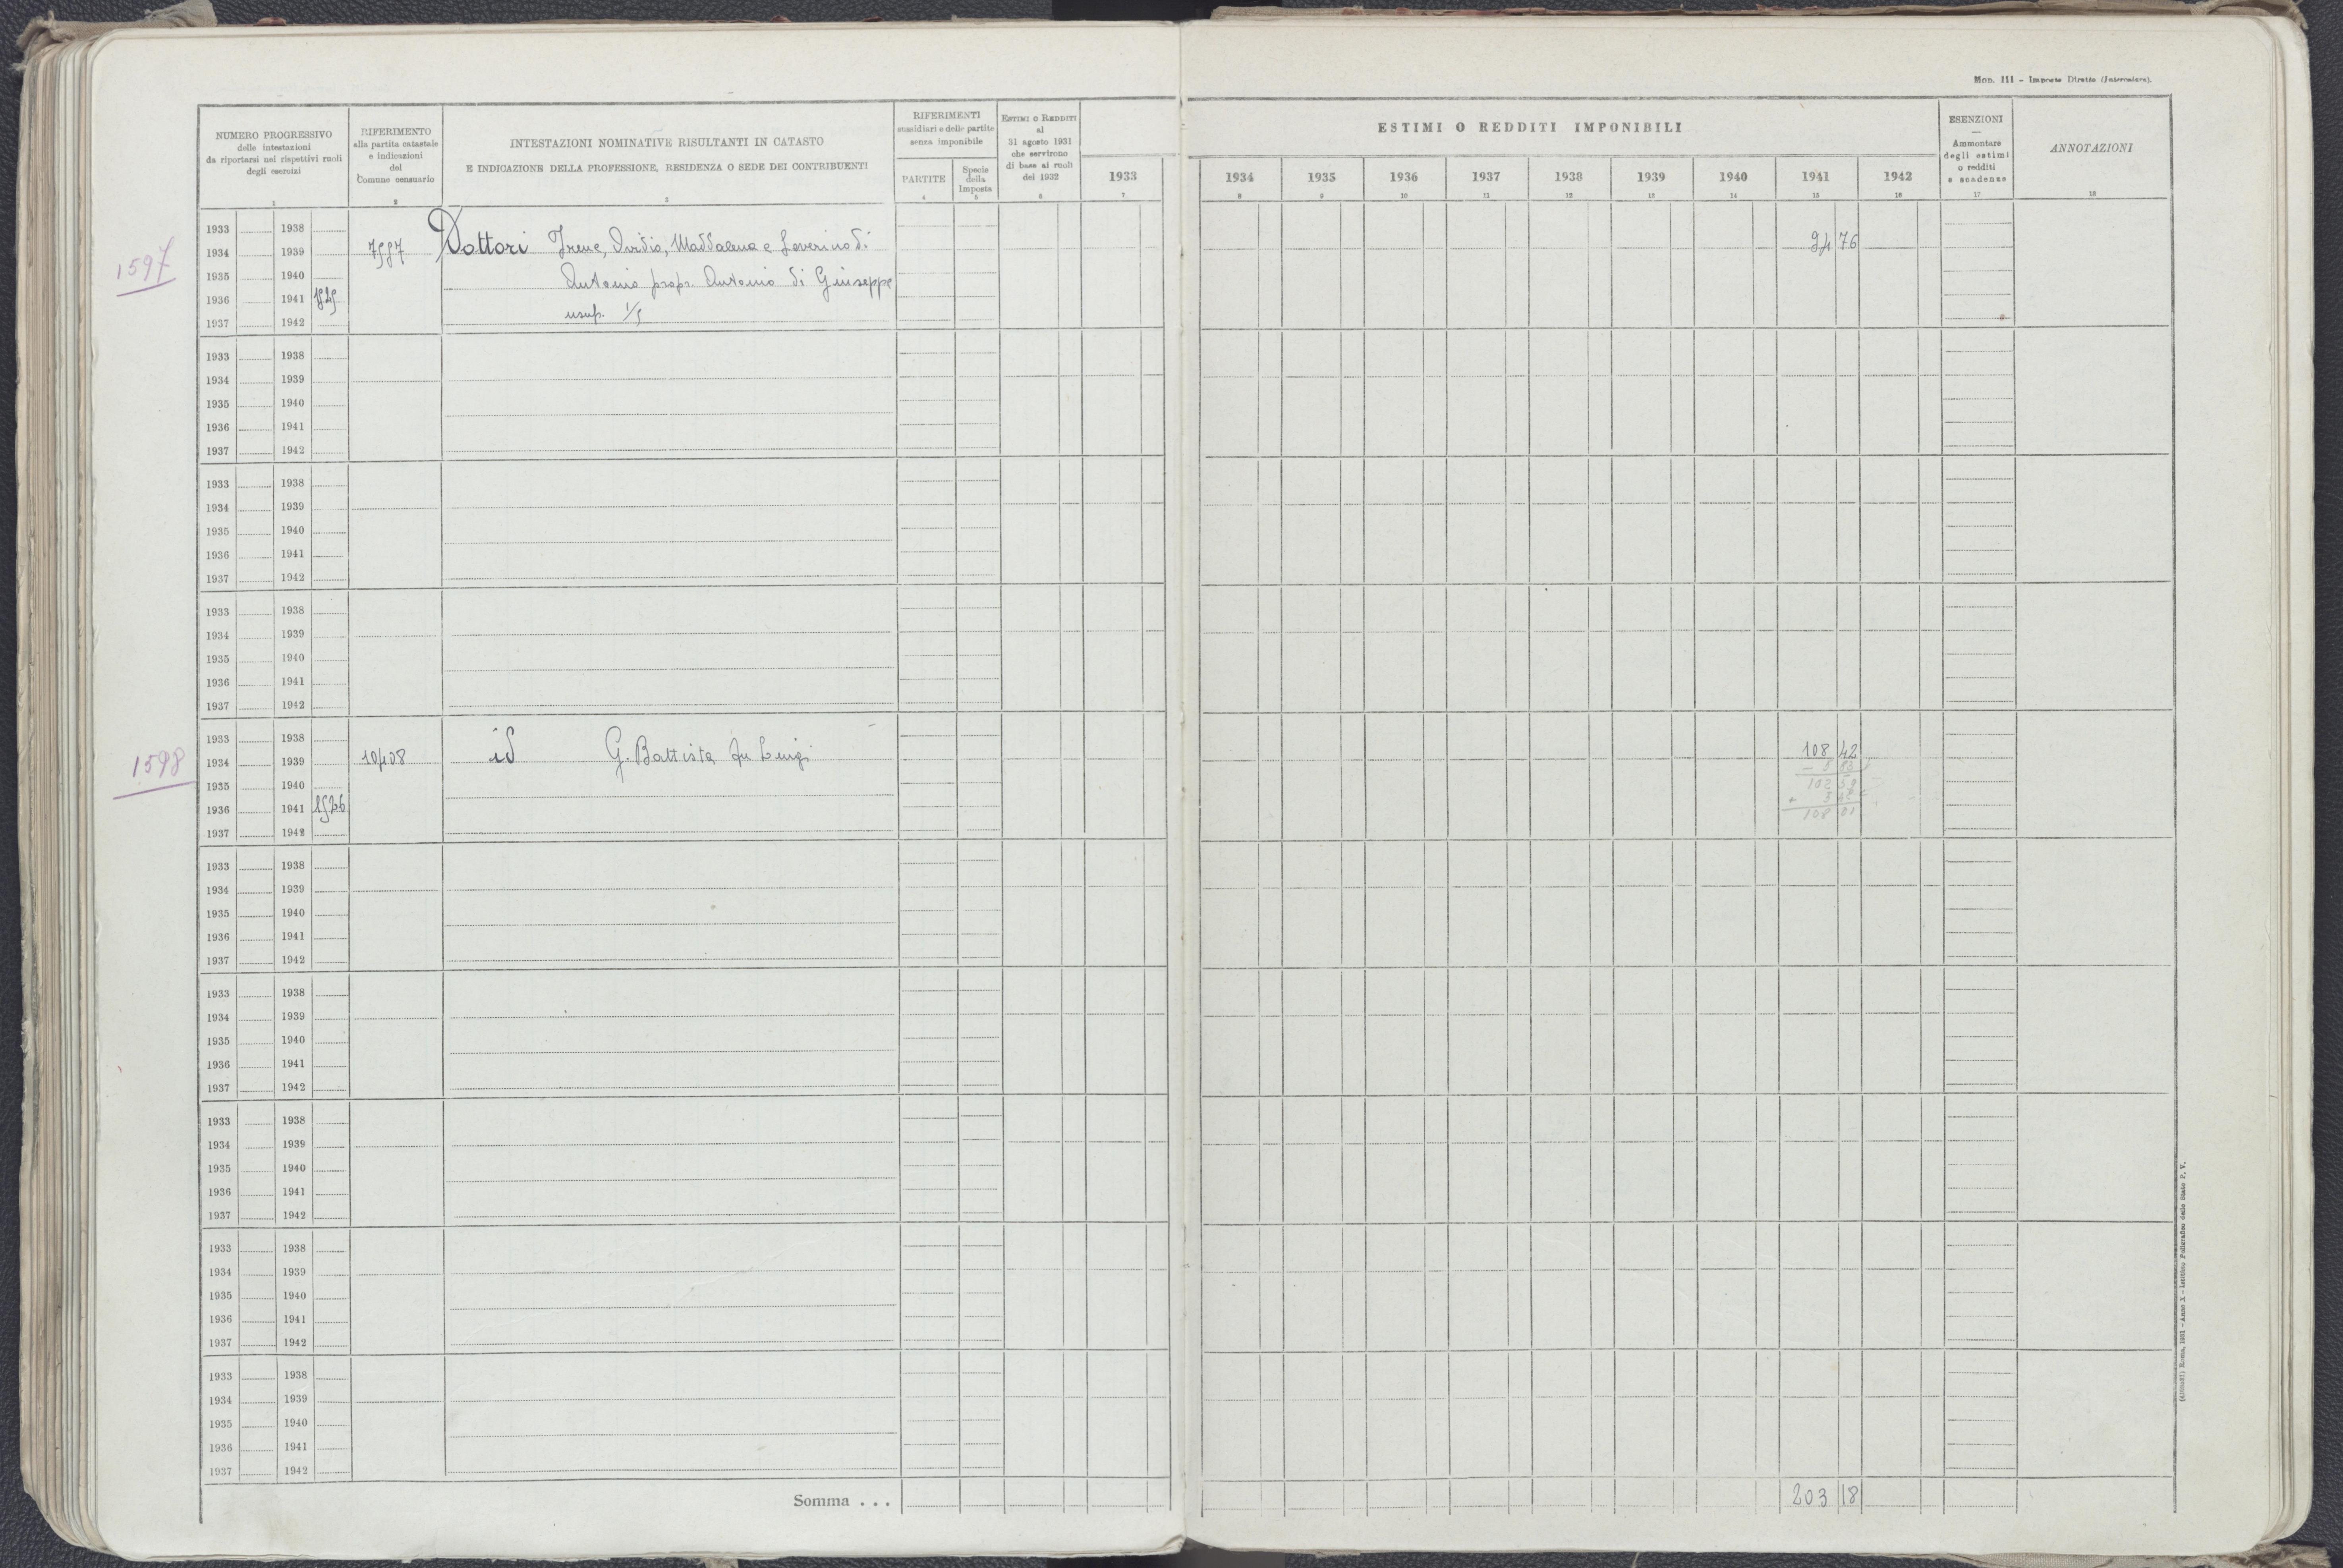 Mod. 111 - Imposte Dirette (Intercalare).
NUMERO PROGRESSIVO
delle intestazioni
da riportarsi nei rispettivi ruoli
degli esercizi
1
RIFERIMENTO
alla partita catastale
e indicazioni
del
Comune censuario
2
INTESTAZIONI NOMINATIVE RISULTANTI IN CATASTO
E INDICAZIONE DELLA PROFESSIONE, RESIDENZA O SEDE DEI CONTRIBUENTI
3
RIFERIMENTI
sussidiari a delle partite
senza imponibile
PARTITE
4
Specie
della
Imposta
5
ESTIMI O REDDITI
al
31 agosto 1931
che servirono
di base ai ruoli
del 1932
6
1933
7
ESTIMI O REDDITI IMPONIBILI
1934 1935 1936 1937 1938 1939 1940 1941 1942
8 9 10 11 12 13 14 15 16
ESENZIONI
Ammontare
degli estimi
o redditi
e scadenze
17
ANNOTAZIONI
18
1597
1933 1938
1934 1939 7597 Dottori Irene, Ovidio, Maddalena e Severino di 94 76
1935 1940 Antonio propr. Antonio di Giuseppe
1936 1941 1525
1937 1942 usuf. 1/5
1933 1938
1934 1939
1935 1940
1936 1941
1937 1942
1933 1938
1934 1939
1935 1940
1936 1941
1937 1942
1933 1938
1934 1939
1935 1940
1936 1941
1937 1942
1598
1933 1938
1934 1939 10408 id G. Battista fu Luigi 108 42
1935 1940
1936 1941 1526
1937 1942
1933 1938
1934 1939
1935 1940
1936 1941
1937 1942
1933 1938
1934 1939
1935 1940
1936 1941
1937 1942
1933 1938
1934 1939
1935 1940
1936 1941
1937 1942
1933 1938
1934 1939
1935 1940
1936 1941
1937 1942
1933 1938
1934 1939
1935 1940
1936 1941
1937 1942
Somma . . . 203 18
Roma, 1931 - Anno X - Istituto Poligrafico dello Stato P. V.